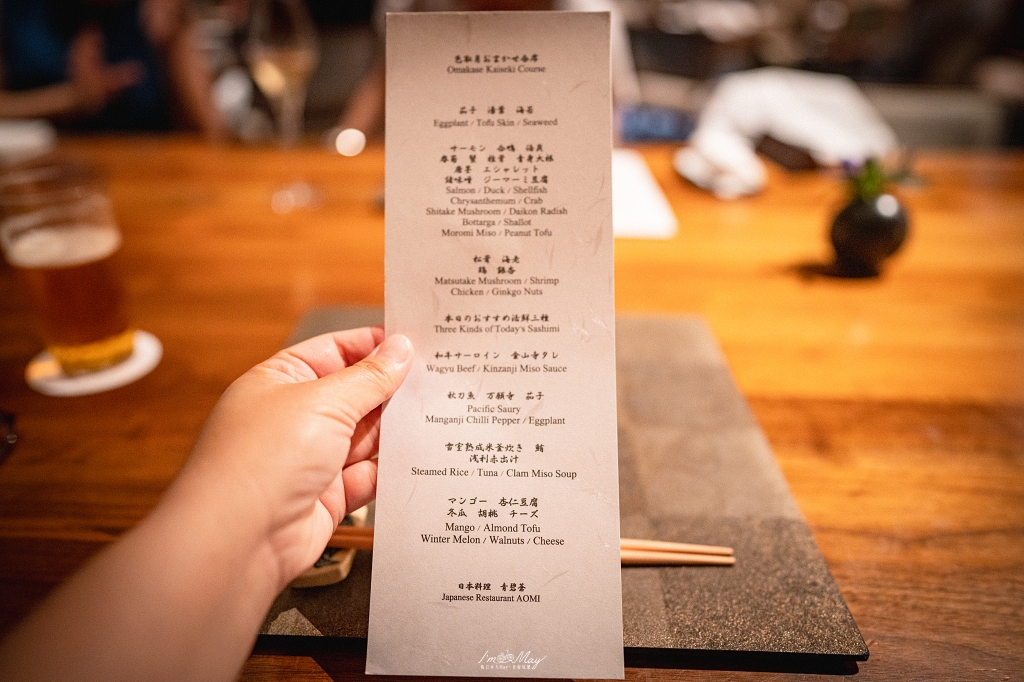 色取月おまかせ会席
Omakase Kaiseki Course
茄子　湯葉　海苔
Eggplant / Tofu Skin / Seaweed
サーモン　合鴨　海貝
春菊　蟹　椎茸　青身大根
唐墨　エシャレット
諸味噌　ジーマーミ豆腐
Salmon / Duck / Shellfish
Chrysanthemum / Crab
Shitake Mushroom / Daikon Radish
Bottarga / Shallot
Moromi Miso / Peanut Tofu
松茸　海老
鶏　銀杏
Matsutake Mushroom / Shrimp
Chicken / Ginkgo Nuts
本日のおすすめ活鮮三種
Three Kinds of Today's Sashimi
和牛サーロイン　金山寺タレ
Wagyu Beef / Kinzanji Miso Sauce
秋刀魚　万願寺　茄子
Pacific Saury
Manganji Chilli Pepper / Eggplant
雪室熟成米釜炊き　鮪
浅利赤出汁
Steamed Rice / Tuna / Clam Miso Soup
マンゴー　杏仁豆腐
冬瓜　胡桃　チーズ
Mango / Almond Tofu
Winter Melon / Walnuts / Cheese
日本料理　青碧蒼
Japanese Restaurant AOMI
I'm May